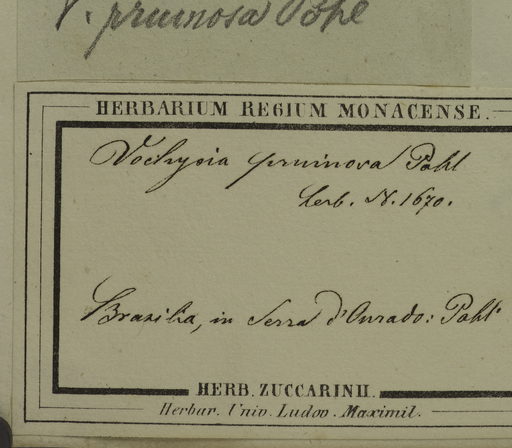 V. pruinosa Pohl
HERBARIUM REGIUM MONACENSE.
Vochysia pruinosa Pohl
herb. N. 1670.
Brasilia, in Serra d'Ourado: Pohl
HERB. ZUCCARINII.
Herbar. Univ. Ludov. Maximil.